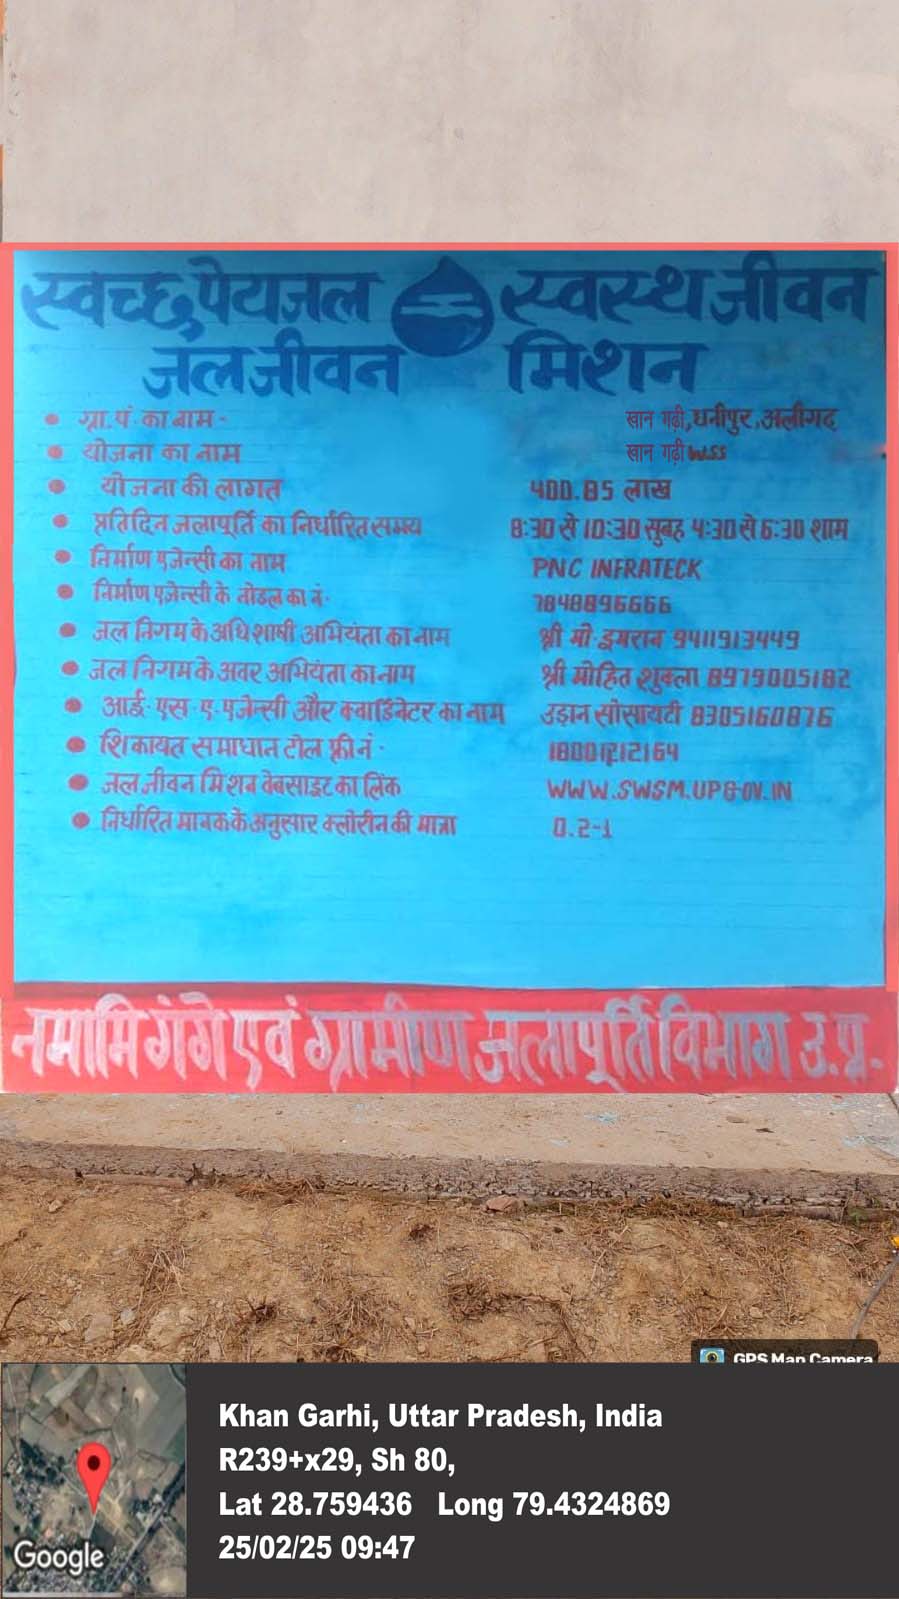 स्वच्छ पेयजल स्वस्थ जीवन
जल जीवन मिशन
• ग्रा.पं. का नाम - खान गढ़ी, धनीपुर, अलीगढ़
• योजना का नाम खान गढ़ी WSS
• योजना की लागत 400.85 लाख
• प्रतिदिन जलापूर्ति का निर्धारित समय 8:30 से 10:30 सुबह 4:30 से 6:30 शाम
• निर्माण एजेन्सी का नाम PNC INFRATECK
• निर्माण एजेन्सी के नोडल का नं. 7848896666
• जल निगम के अधिशाषी अभियंता का नाम श्री मो. इमरान 9411913449
• जल निगम के अवर अभियंता का नाम श्री मोहित शुक्ला 8979005182
• आई. एस. ए. एजेन्सी और क्वार्डिनेटर का नाम उड़ान सोसायटी 8305160876
• शिकायत समाधान टोल फ्री नं. 18001212164
• जल जीवन मिशन वेबसाइट का लिंक WWW.SWSM.UPGOV.IN
• निर्धारित मानक के अनुसार क्लोरीन की मात्रा 0.2-1
नमामि गंगे एवं ग्रामीण जलापूर्ति विभाग उ.प्र.
GPS Map Camera
Khan Garhi, Uttar Pradesh, India
R239+x29, Sh 80,
Lat 28.759436 Long 79.4324869
25/02/25 09:47
Google